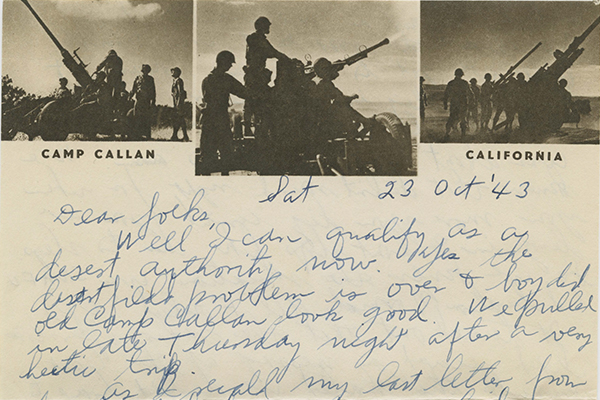 CAMP CALLAN
CALIFORNIA
Sat 23 Oct '43
Dear folks,
Well I can qualify as a
desert authority now. Yes the
desert field problem is over & boy did
old Camp Callan look good. We pulled
in late Thursday night after a very
hectic trip.
as I recall my last letter from